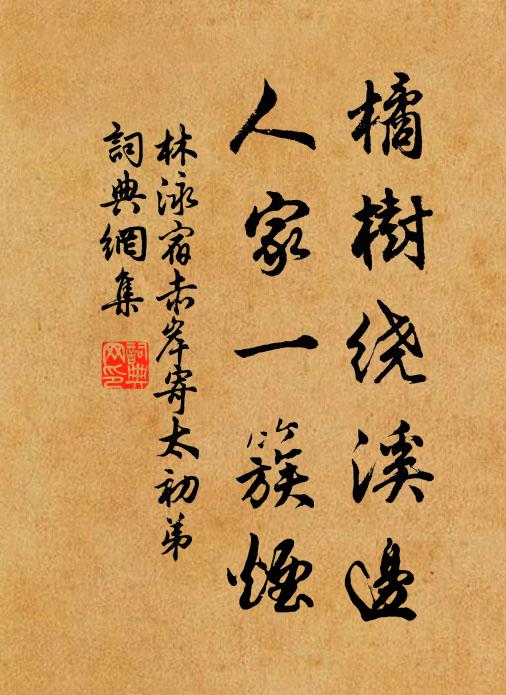 橘樹绕溪邊
人家一簇煙
林泳宿赤岸寄太初弟
詞典網集
詞典網印